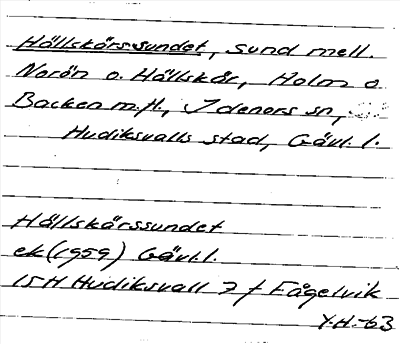 Hällskärssundet, sund mell.
Norön o. Hällskär, Holm o
Backen m.fl., Idenors sn,
Hudiksvalls stad, Gävl. l.
Hällskärssundet
ek (1959) Gävl.l.
15H Hudiksvall 7 f Fågelvik
Y.H.-63